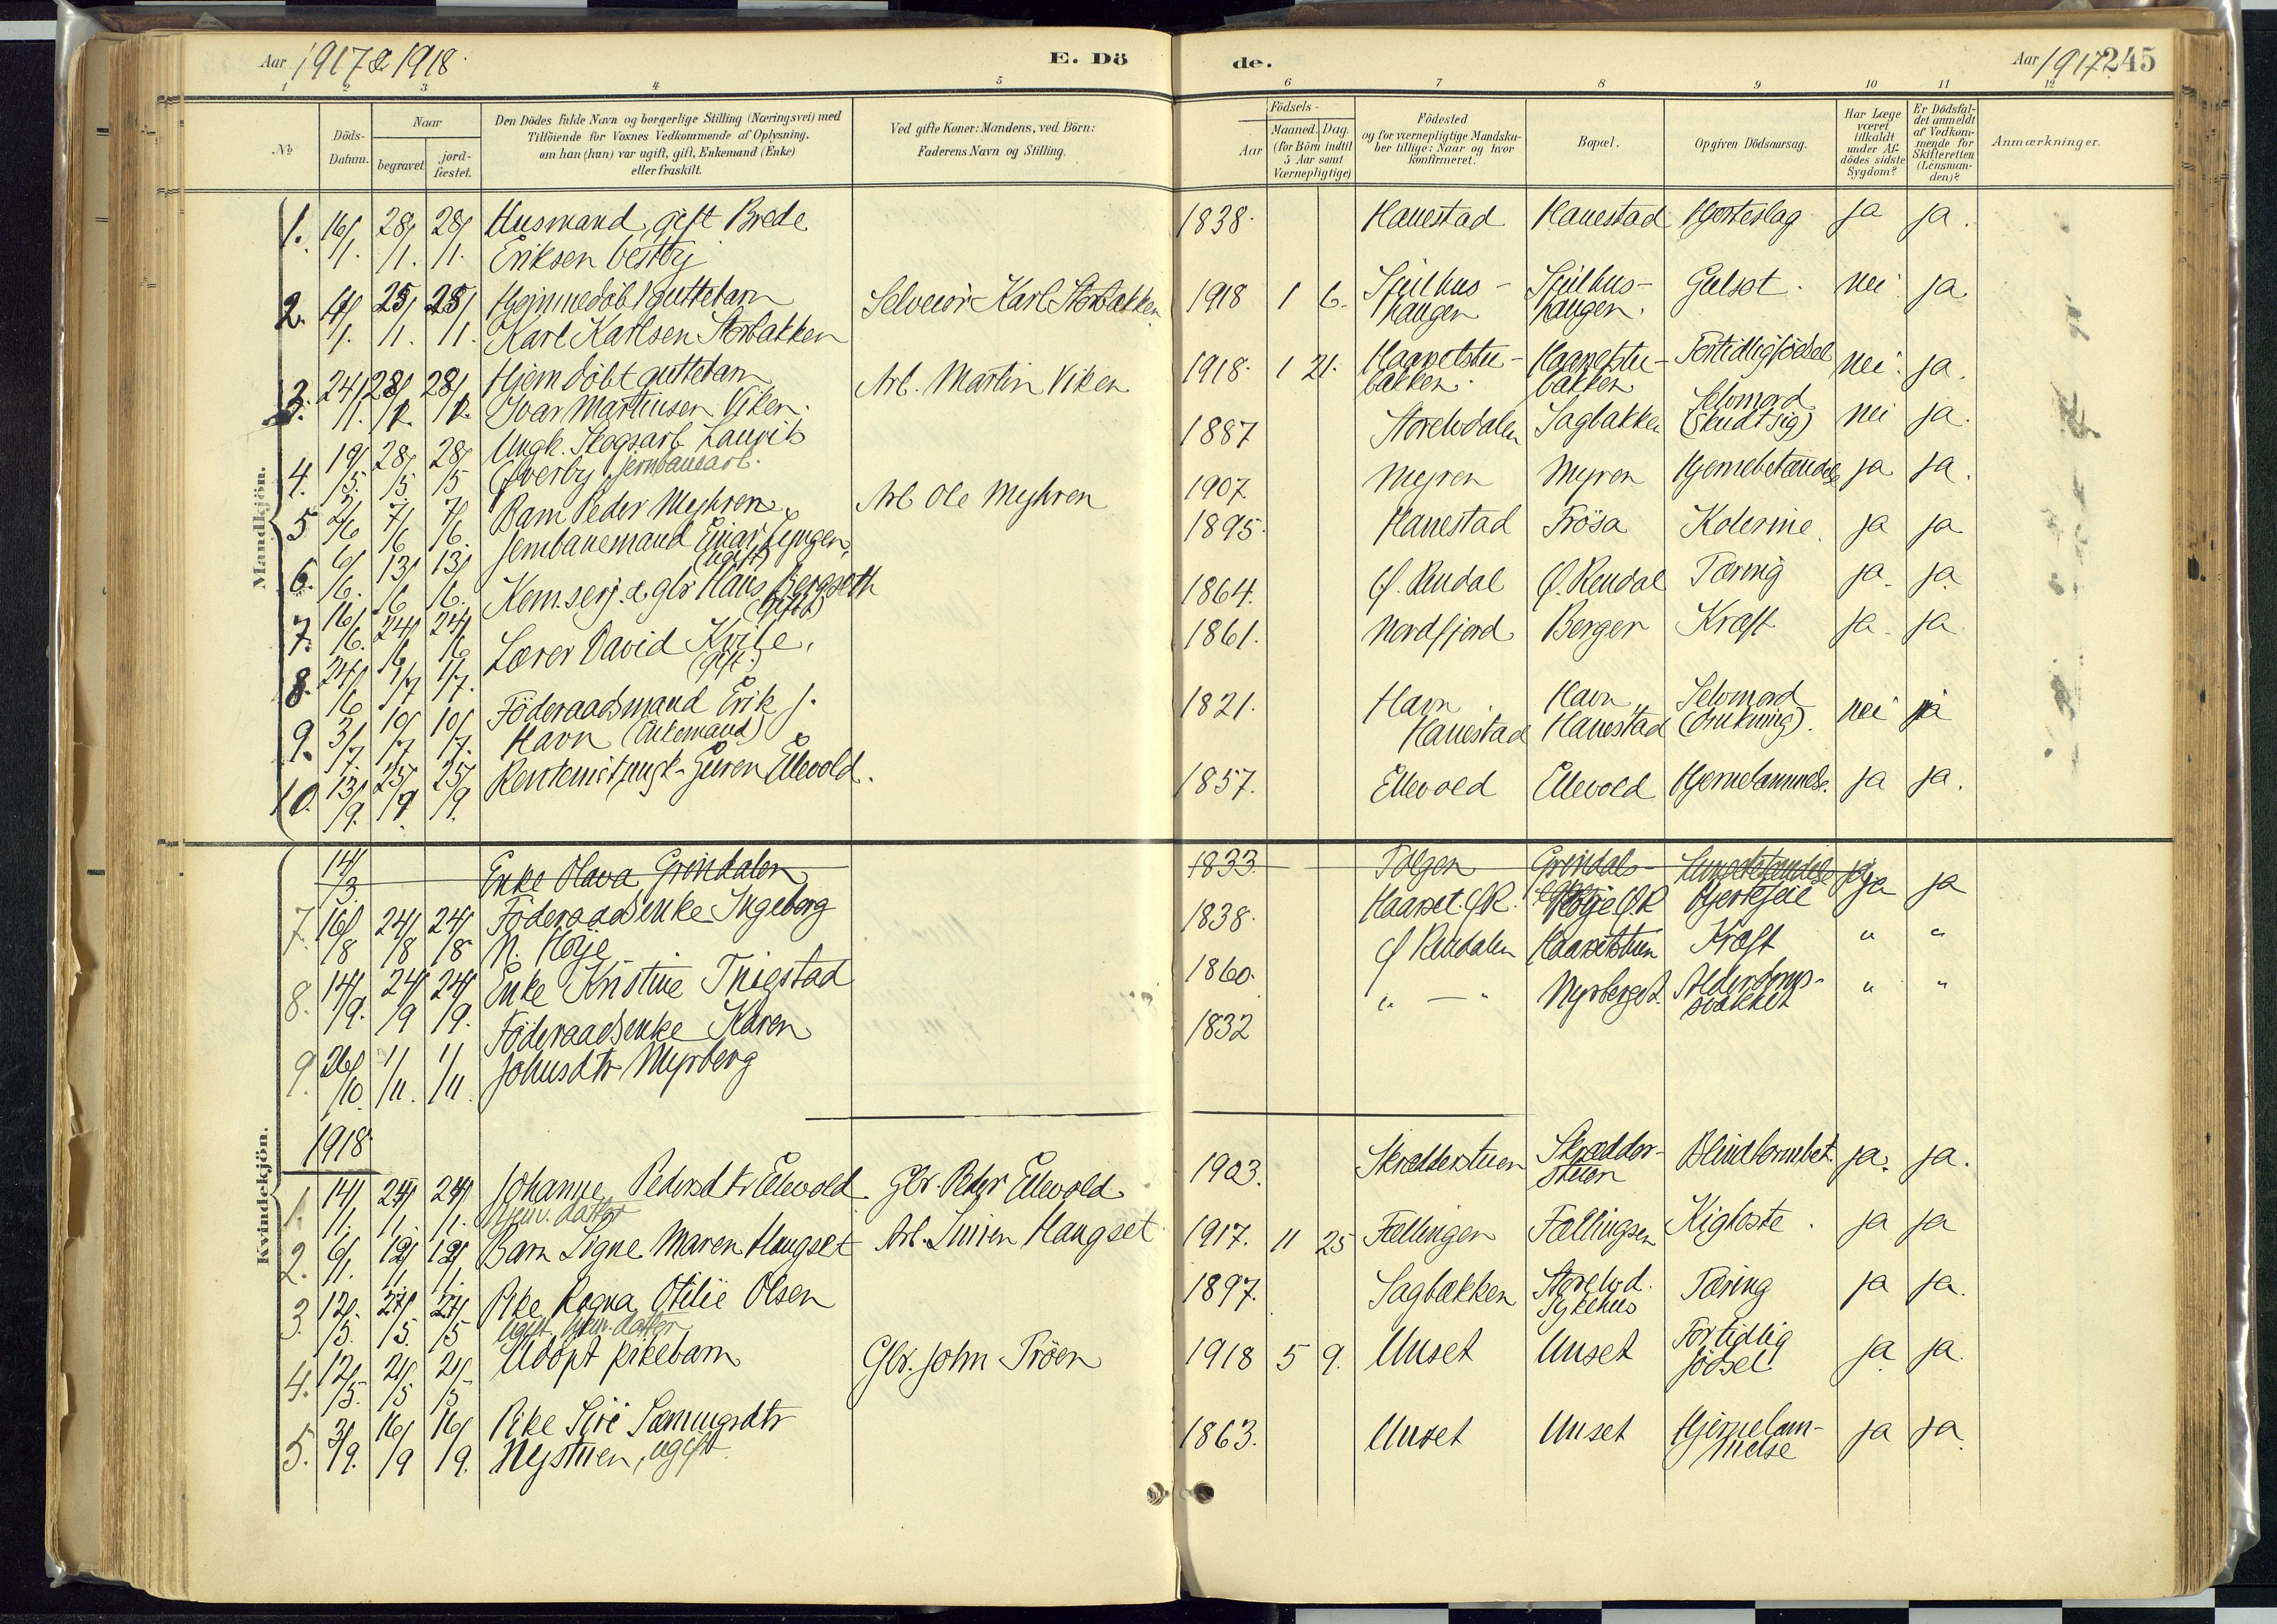 Aar 1917 & 1918.
E. Dö
de.
Aar 1917
245
1 2 3 4 5 6 7 8 9 10 11 12
No
Döds-Datum.
Naar
begravet
jord-fæstet.
Den Dödes fulde Navn og borgerlige Stilling (Næringsvei) med
Tilföiende for Voxnes Vedkommende af Oplysning,
om han (hun) var ugift, gift, Enkemand (Enke)
eller fraskilt.
Ved gifte Koner: Mandens, ved Börn:
Faderens Navn og Stilling.
Födsels-
Aar
Maaned. Dag.
(for Börn indtil
5 Aar samt
Værnepligtige)
Födested
og for værnepligtige Mandska-
ber tillige: Naar og hvor
konfirmeret.
Bopæl.
Opgiven Dödsaarsag.
Har Læge
været
tilkaldt
under Af-
dödes sidste
Sygdom?
Er Dödsfal-
det anmeldt
af Vedkom-
mende for
Skifteretten
(Lensman-
den)?
Anmærkninger.
Mandkjön.
1. 16/1. 28/1. 28/1. Husmand, gift Brede 1838. Hanestad Hanestad Hjerteslag ja ja.
Eriksen Vestby
2. 25/1. 25/1. Hjemmedöbt guttebarn Selveier Karl Storbakken 1918 1 6. Sjulhus- Sjulhus- Gulsot. nei ja.
Karl Karlsen Storbakken haugen haugen.
3. 24/1. 28/ 28/ Hjemdöbt guttebarn Arb. Martin Viken 1918. 1 21. Haarsetstu- Haarsetstu- Fortidligfödsel nei ja.
Ivar Martinsen Viken. bakken. bakken
4. 19/5. 28/5. 28/5 Ungk. Skogsarb. Lauritz 1887 Storelvdalen Sagbakken Selvmord nei ja.
Överby, jernbanearb. (skudt sig)
5 2/6 7/6 7/6. Barn Peder Myhren Arb Ole Myhren 1907. Myren Myren Hjernebetændelse ja ja.
6. 6/6. 13/6 13/6. Jernbanemand Einar Lyngen, 1895. Hanestad Trösa Kolerine. ja ja
(ugift)
7. 16/6. 24/6 24/6 Kom.serj. & gbr Hans Bergseth 1864. Ø. Rendal Ø. Rendal Tæring ja. ja
(gift)
8. 24/6 1/7 1/7. Lærer David Kvile, 1861. Nordfjord Berger Kræft ja. ja
(gift.)
9. 3/7. 10/7 10/7. Föderaadsmand Erik J. 1821. Havn Havn Selvmord nei ja
Havn (Enkemand) Hanestad Hanestad (drukning).
10. 13/9. 25/9. 25/9. Rentenist, ungk. Guren Ellevold. 1857. Ellevold Ellevold Hjernelammelse. ja ja.
Kvindekjön.
14/3. Enke Olava Grindalen 1833 Tolgen Grindals- Lungebetændelse ja
7. 16/8 24/8 24/8 Föderaadsenke Ingeborg 1838. Haarset ØR. Höije ØR Hjertefeil ja ja
N. Höje
8. 14/9. 24/9 24/9. Enke Kristine Trigstad 1860. Ø Rendalen Haarsetstuen Kræft " "
9. 26/10. 1/11. 1/11. Föderaadsenke Karen 1832 " — " Myrberget. Alderdoms- " "
Johnsdtr Myrberg svakhet
1918
1. 14/1. 24/1. 24/1. Johanne Pedersdtr Ellevold Gbr. Peder Ellevold 1903. Skrædderstuen Skrædder- Blindtarmbet. ja. ja.
hjem. datter stuen
2. 6/1. 19/1. 19/1. Barn Signe Maren Haugset Arb. Simen Haugset 1917. 11 25 Fællingen Fællingen Kighoste. ja ja
3. 12/5. 24/5. 24/5 Pike Ragna Otilie Olsen 1897. Sagbakken Storelvd. Tæring ja ja.
ugift, hjem. datter Sykehus
4. 12/5. 21/5 21/5 Udöpt pikebarn Gbr. John Tröen 1918 5 9. Unset Unset For tidlig ja ja.
födsel
5. 3/9. 16/9 16/9. Pike Siri Sæmingsdtr 1863. Unset Unset Hjernelam- ja ja.
Nystuen, ugift. melse